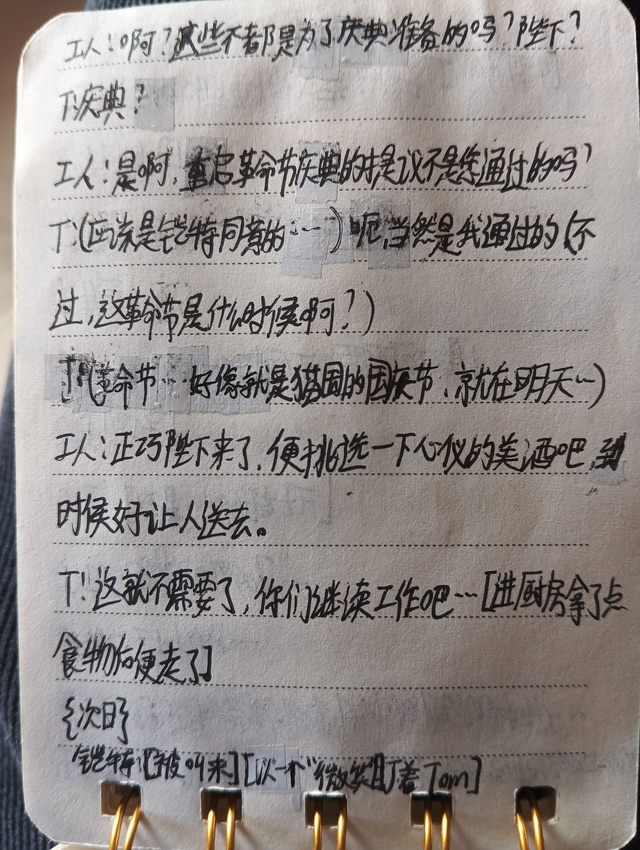 工人:啊?这些不都是为了庆典准备的吗?陛下?
T:庆典?
工人:是啊,重启革命节庆典的提议不是您通过的吗?
T:(应该是铠特同意的……)呃,当然是我通过的(不
过,这革命节是什么时候啊?)
T:(革命节…好像就是猫国的国庆节,就在明天…)
工人:正巧陛下来了,便挑选一下心仪的美酒吧,到
时候好让人送去。
T:这就不需要了,你们继续工作吧…[进厨房拿了点
食物向便走了]
{次日}
铠特:[被叫来][以一个"微笑"盯着Tom]